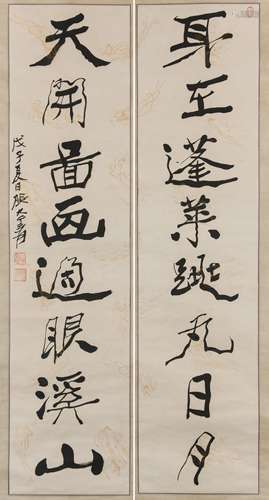 身在蓬莱跳丸日月
天開圖画過眼溪山
戊子夏日張大千爰